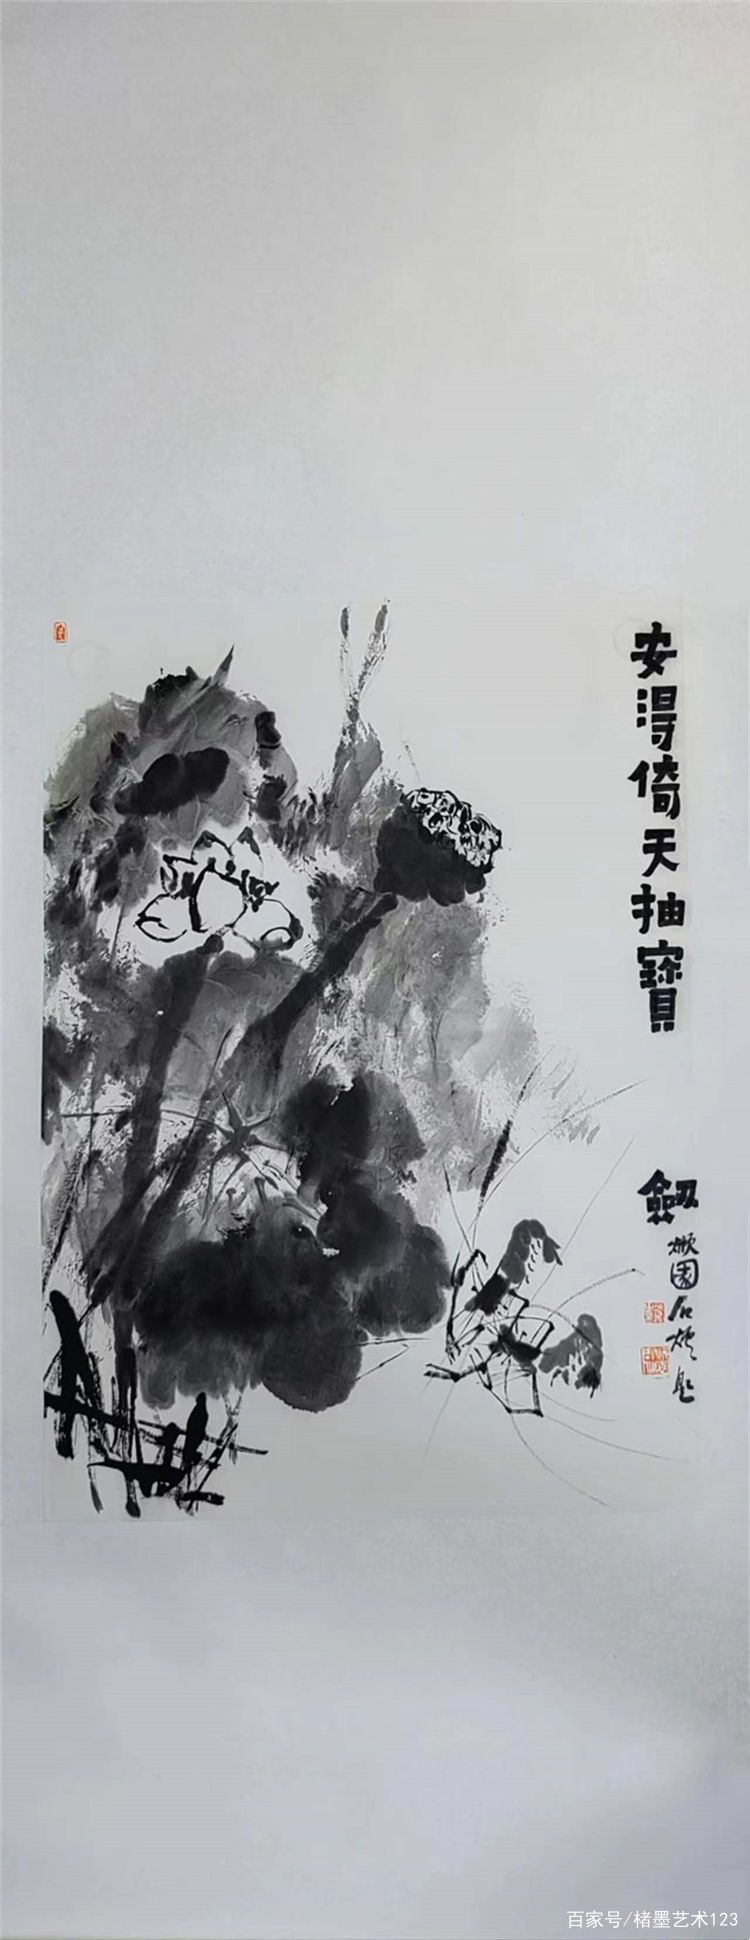 安得倚天抽寶
劔
園石
百家号/楮墨艺术123